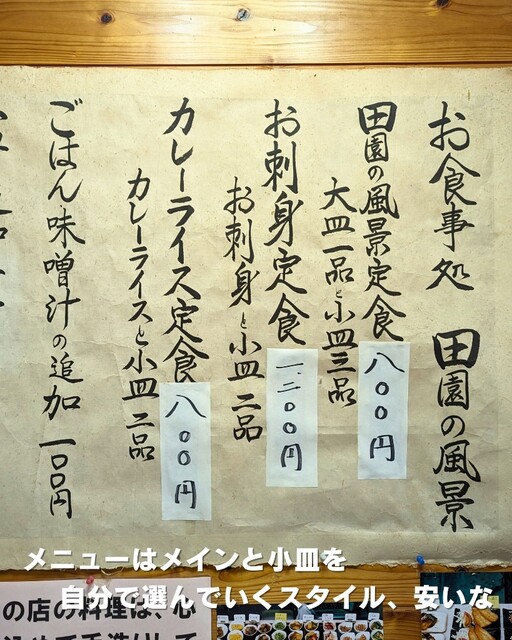 お食事処 田園の風景
田園の風景定食 八〇〇円
大皿一品と小皿三品
お刺身定食 一、二〇〇円
お刺身と小皿二品
カレーライス定食 八〇〇円
カレーライスと小皿二品
ごはん味噌汁の追加 一〇〇円
メニューはメインと小皿を
自分で選んでいくスタイル、安いな
の店の料理は、心